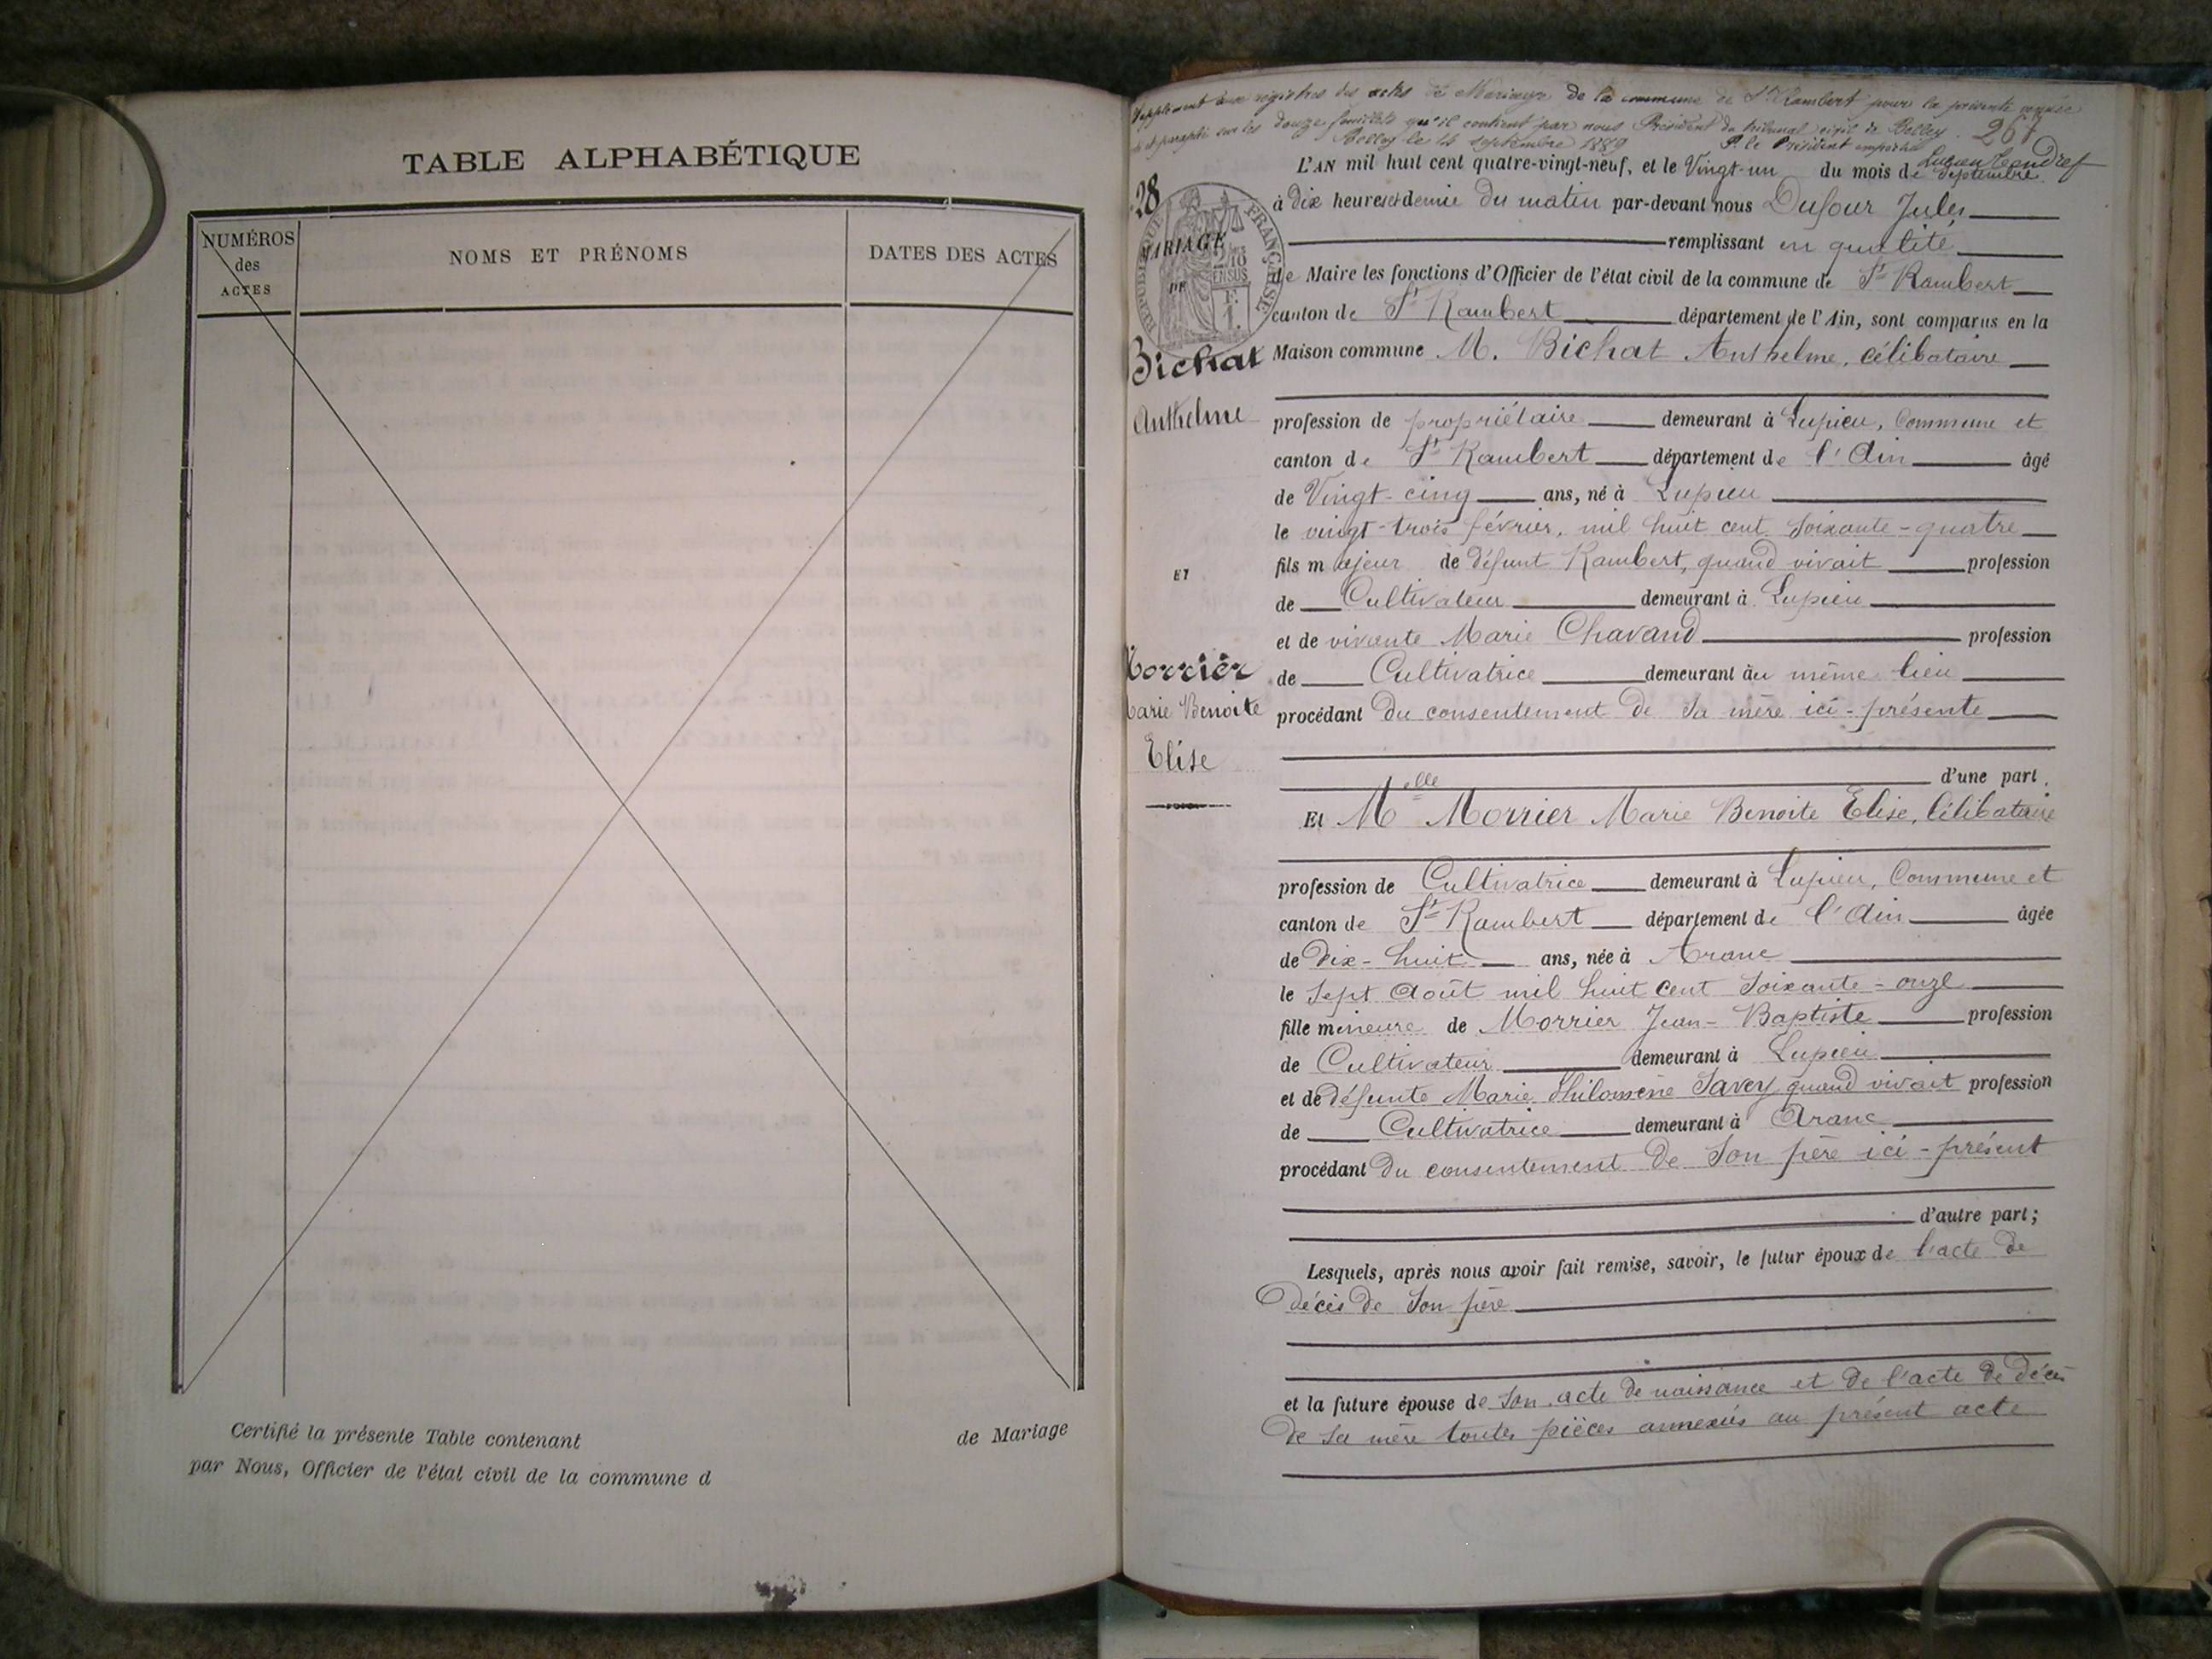 TABLE ALPHABÉTIQUE
NUMÉROS
des
ACTES
NOMS ET PRÉNOMS
DATES DES ACTES
Certifié la présente Table contenant de Mariage
par Nous, Officier de l'état civil de la commune d
Supplément aux registres des actes de Mariage de la commune de St Rambert pour la présente année
et paraphé sur les douze feuillets qu'il contient par nous Président du tribunal civil de Belley. 267
Belley le 14 septembre 1889 P. le Président empêché
28
MARIAGE
DE
RÉPUBLIQUE FRANÇAISE
Bichat
Anthelme
ET
Morrier
Marie Benoite
Elise
L'AN mil huit cent quatre-vingt-neuf, et le Vingt-un du mois de Septembre
à dix heures et demie du matin par-devant nous Dufour Jules
remplissant en qualité
de Maire les fonctions d'Officier de l'état civil de la commune de St Rambert
canton de St Rambert département de l'Ain, sont comparus en la
Maison commune M. Bichat Anthelme, célibataire
profession de propriétaire demeurant à Lupieu, Commune et
canton de St Rambert département de l'Ain âgé
de Vingt-cinq ans, né à Lupieu
le vingt-trois février, mil huit cent soixante-quatre
fils majeur de défunt Rambert, quand vivait profession
de Cultivateur demeurant à Lupieu
et de vivante Marie Chavand profession
de Cultivatrice demeurant au même lieu
procédant du consentement de sa mère ici-présente
d'une part.
Et Melle Morrier Marie Benoite Elise, Célibataire
profession de Cultivatrice demeurant à Lupieu, Commune et
canton de St Rambert département de l'Ain âgée
de dix-huit ans, née à Aranc
le sept Août mil huit cent soixante-onze
fille mineure de Morrier Jean-Baptiste profession
de Cultivateur demeurant à Lupieu
et de défunte Marie Philomène Savey, quand vivait profession
de Cultivatrice demeurant à Aranc
procédant du consentement de son père ici-présent
d'autre part;
Lesquels, après nous avoir fait remise, savoir, le futur époux de l'acte de
décès de son père
et la future épouse de son acte de naissance et de l'acte de décès
de sa mère toutes pièces annexées au présent acte